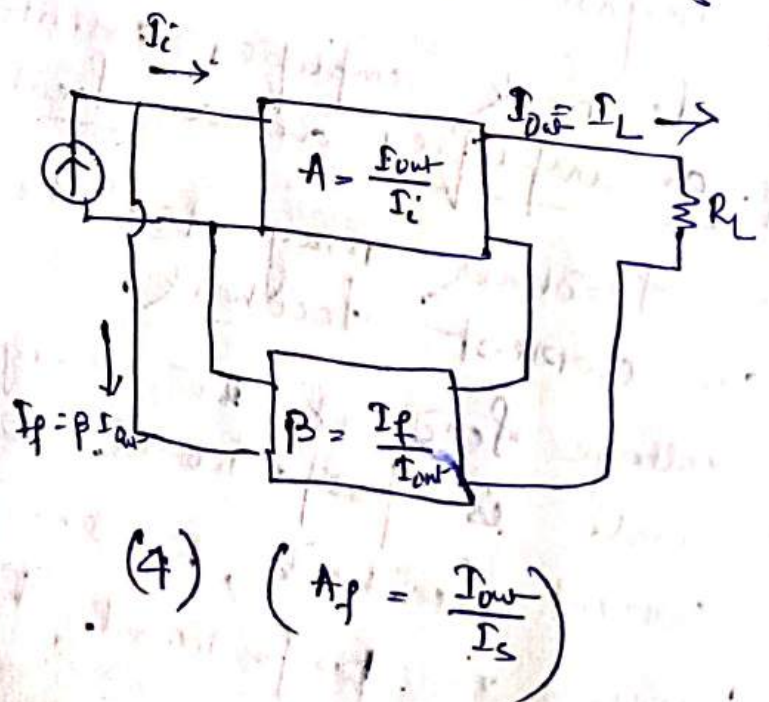 Ii
Iout = IL
A = Iout/Ii
RL
If = β Iout
β = If/Iout
(4) (Af = Iout/Is)